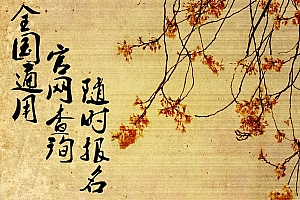 全国通用
官网查询
随时报名